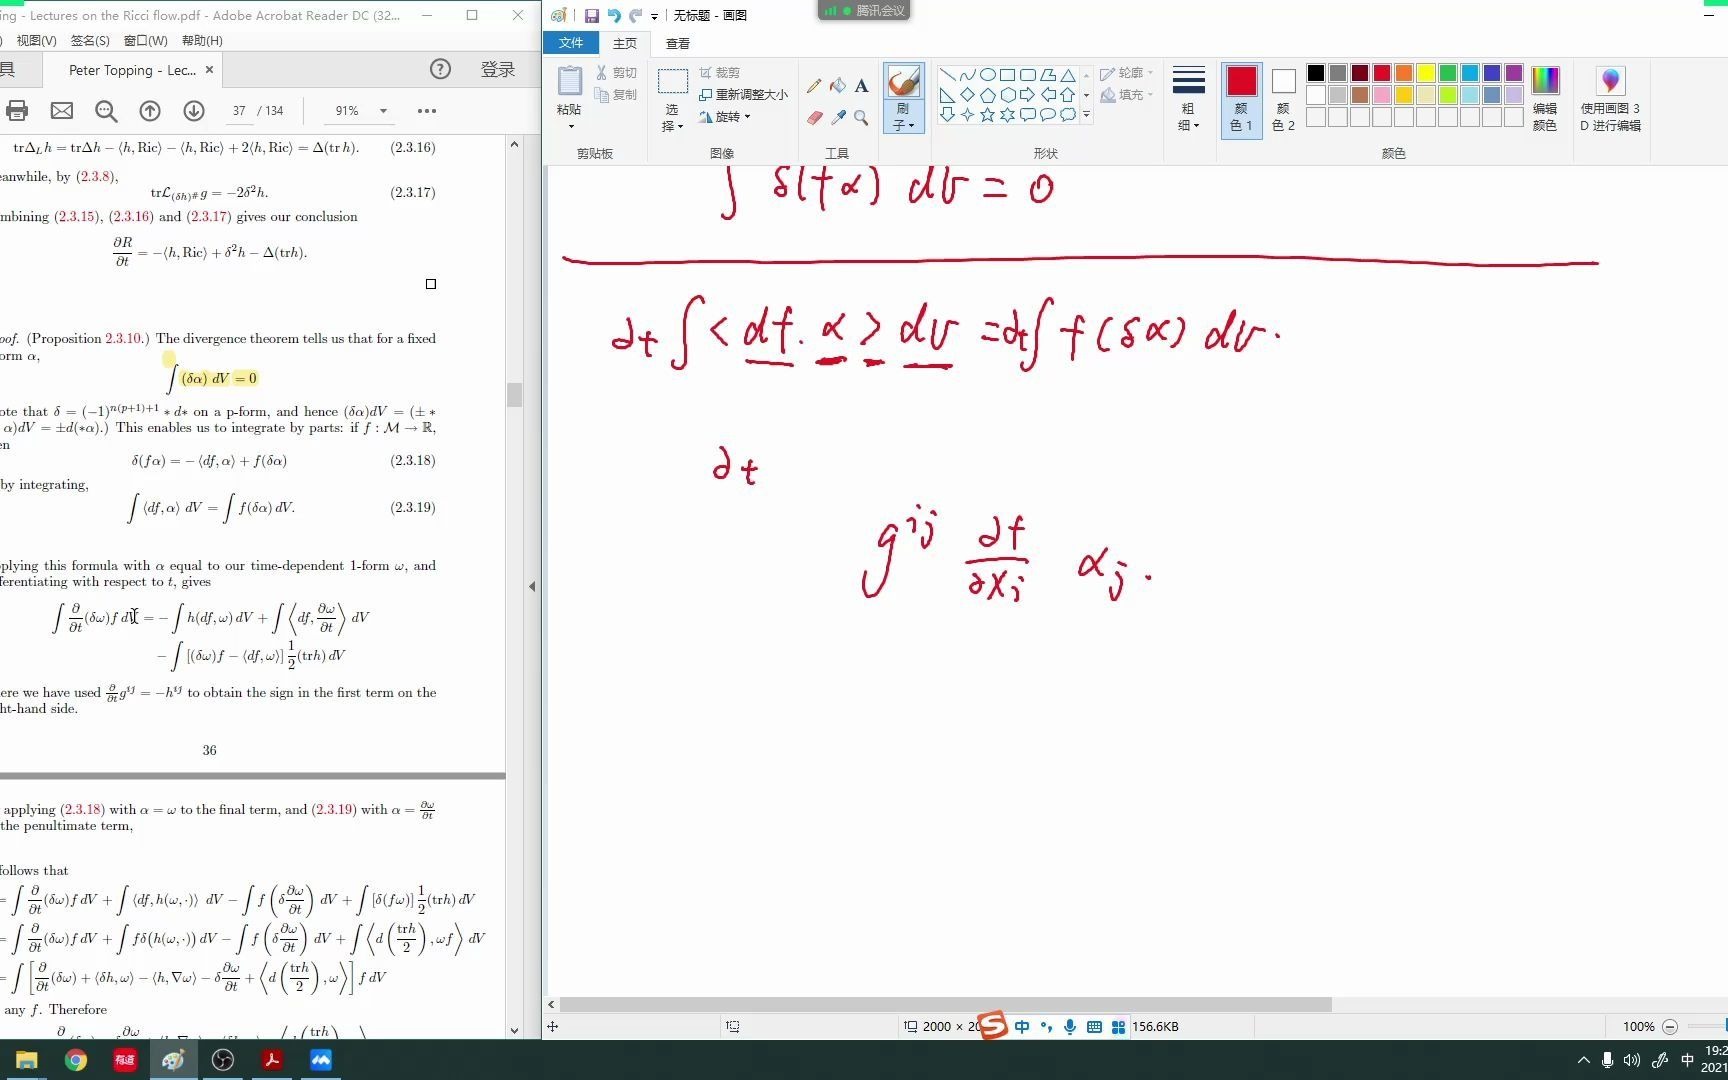 ing - Lectures on the Ricci flow.pdf - Adobe Acrobat Reader DC (32...
视图(V) 签名(S) 窗口(W) 帮助(H)
具 Peter Topping - Lec... × 登录
37 / 134 91%
trΔ_L h = trΔh − ⟨h, Ric⟩ − ⟨h, Ric⟩ + 2⟨h, Ric⟩ = Δ(tr h). (2.3.16)
eanwhile, by (2.3.8),
trℒ_{(δh)^#} g = −2δ²h. (2.3.17)
mbining (2.3.15), (2.3.16) and (2.3.17) gives our conclusion
∂R/∂t = −⟨h, Ric⟩ + δ²h − Δ(trh).
□
oof. (Proposition 2.3.10.) The divergence theorem tells us that for a fixed
orm α,
∫ (δα) dV = 0
ote that δ = (−1)^{n(p+1)+1} ∗ d∗ on a p-form, and hence (δα)dV = (± ∗
α)dV = ±d(∗α).) This enables us to integrate by parts: if f : ℳ → ℝ,
en
δ(fα) = −⟨df, α⟩ + f(δα) (2.3.18)
by integrating,
∫ ⟨df, α⟩ dV = ∫ f(δα) dV. (2.3.19)
plying this formula with α equal to our time-dependent 1-form ω, and
ferentiating with respect to t, gives
∫ ∂/∂t (δω) f dV = − ∫ h(df, ω) dV + ∫ ⟨df, ∂ω/∂t⟩ dV
− ∫ [(δω)f − ⟨df, ω⟩] 1/2 (trh) dV
ere we have used ∂/∂t g^{ij} = −h^{ij} to obtain the sign in the first term on the
ht-hand side.
36
applying (2.3.18) with α = ω to the final term, and (2.3.19) with α = ∂ω/∂t
the penultimate term,
follows that
= ∫ ∂/∂t (δω) f dV + ∫ ⟨df, h(ω, ·)⟩ dV − ∫ f (δ ∂ω/∂t) dV + ∫ [δ(fω)] 1/2 (trh) dV
= ∫ ∂/∂t (δω) f dV + ∫ fδ(h(ω, ·)) dV − ∫ f (δ ∂ω/∂t) dV + ∫ ⟨d(trh/2), ωf⟩ dV
= ∫ [∂/∂t (δω) + ⟨δh, ω⟩ − ⟨h, ∇ω⟩ − δ ∂ω/∂t + ⟨d(trh/2), ω⟩] f dV
any f. Therefore
无标题 - 画图
腾讯会议
文件 主页 查看
粘贴 剪切 复制
剪贴板
选择 裁剪 重新调整大小 旋转
图像
A
工具
刷子
轮廓 填充
形状
粗细
颜色 1
颜色 2
编辑颜色
颜色
使用画图 3D 进行编辑
∫ δ(fα) dv = 0
∂t ∫ < df. α > dv = ∂t ∫ f (δα) dv.
∂t
g^{ij} ∂f/∂x_i α_j .
2000 × 20
中
156.6KB
100%
有道
中
19:2
2021